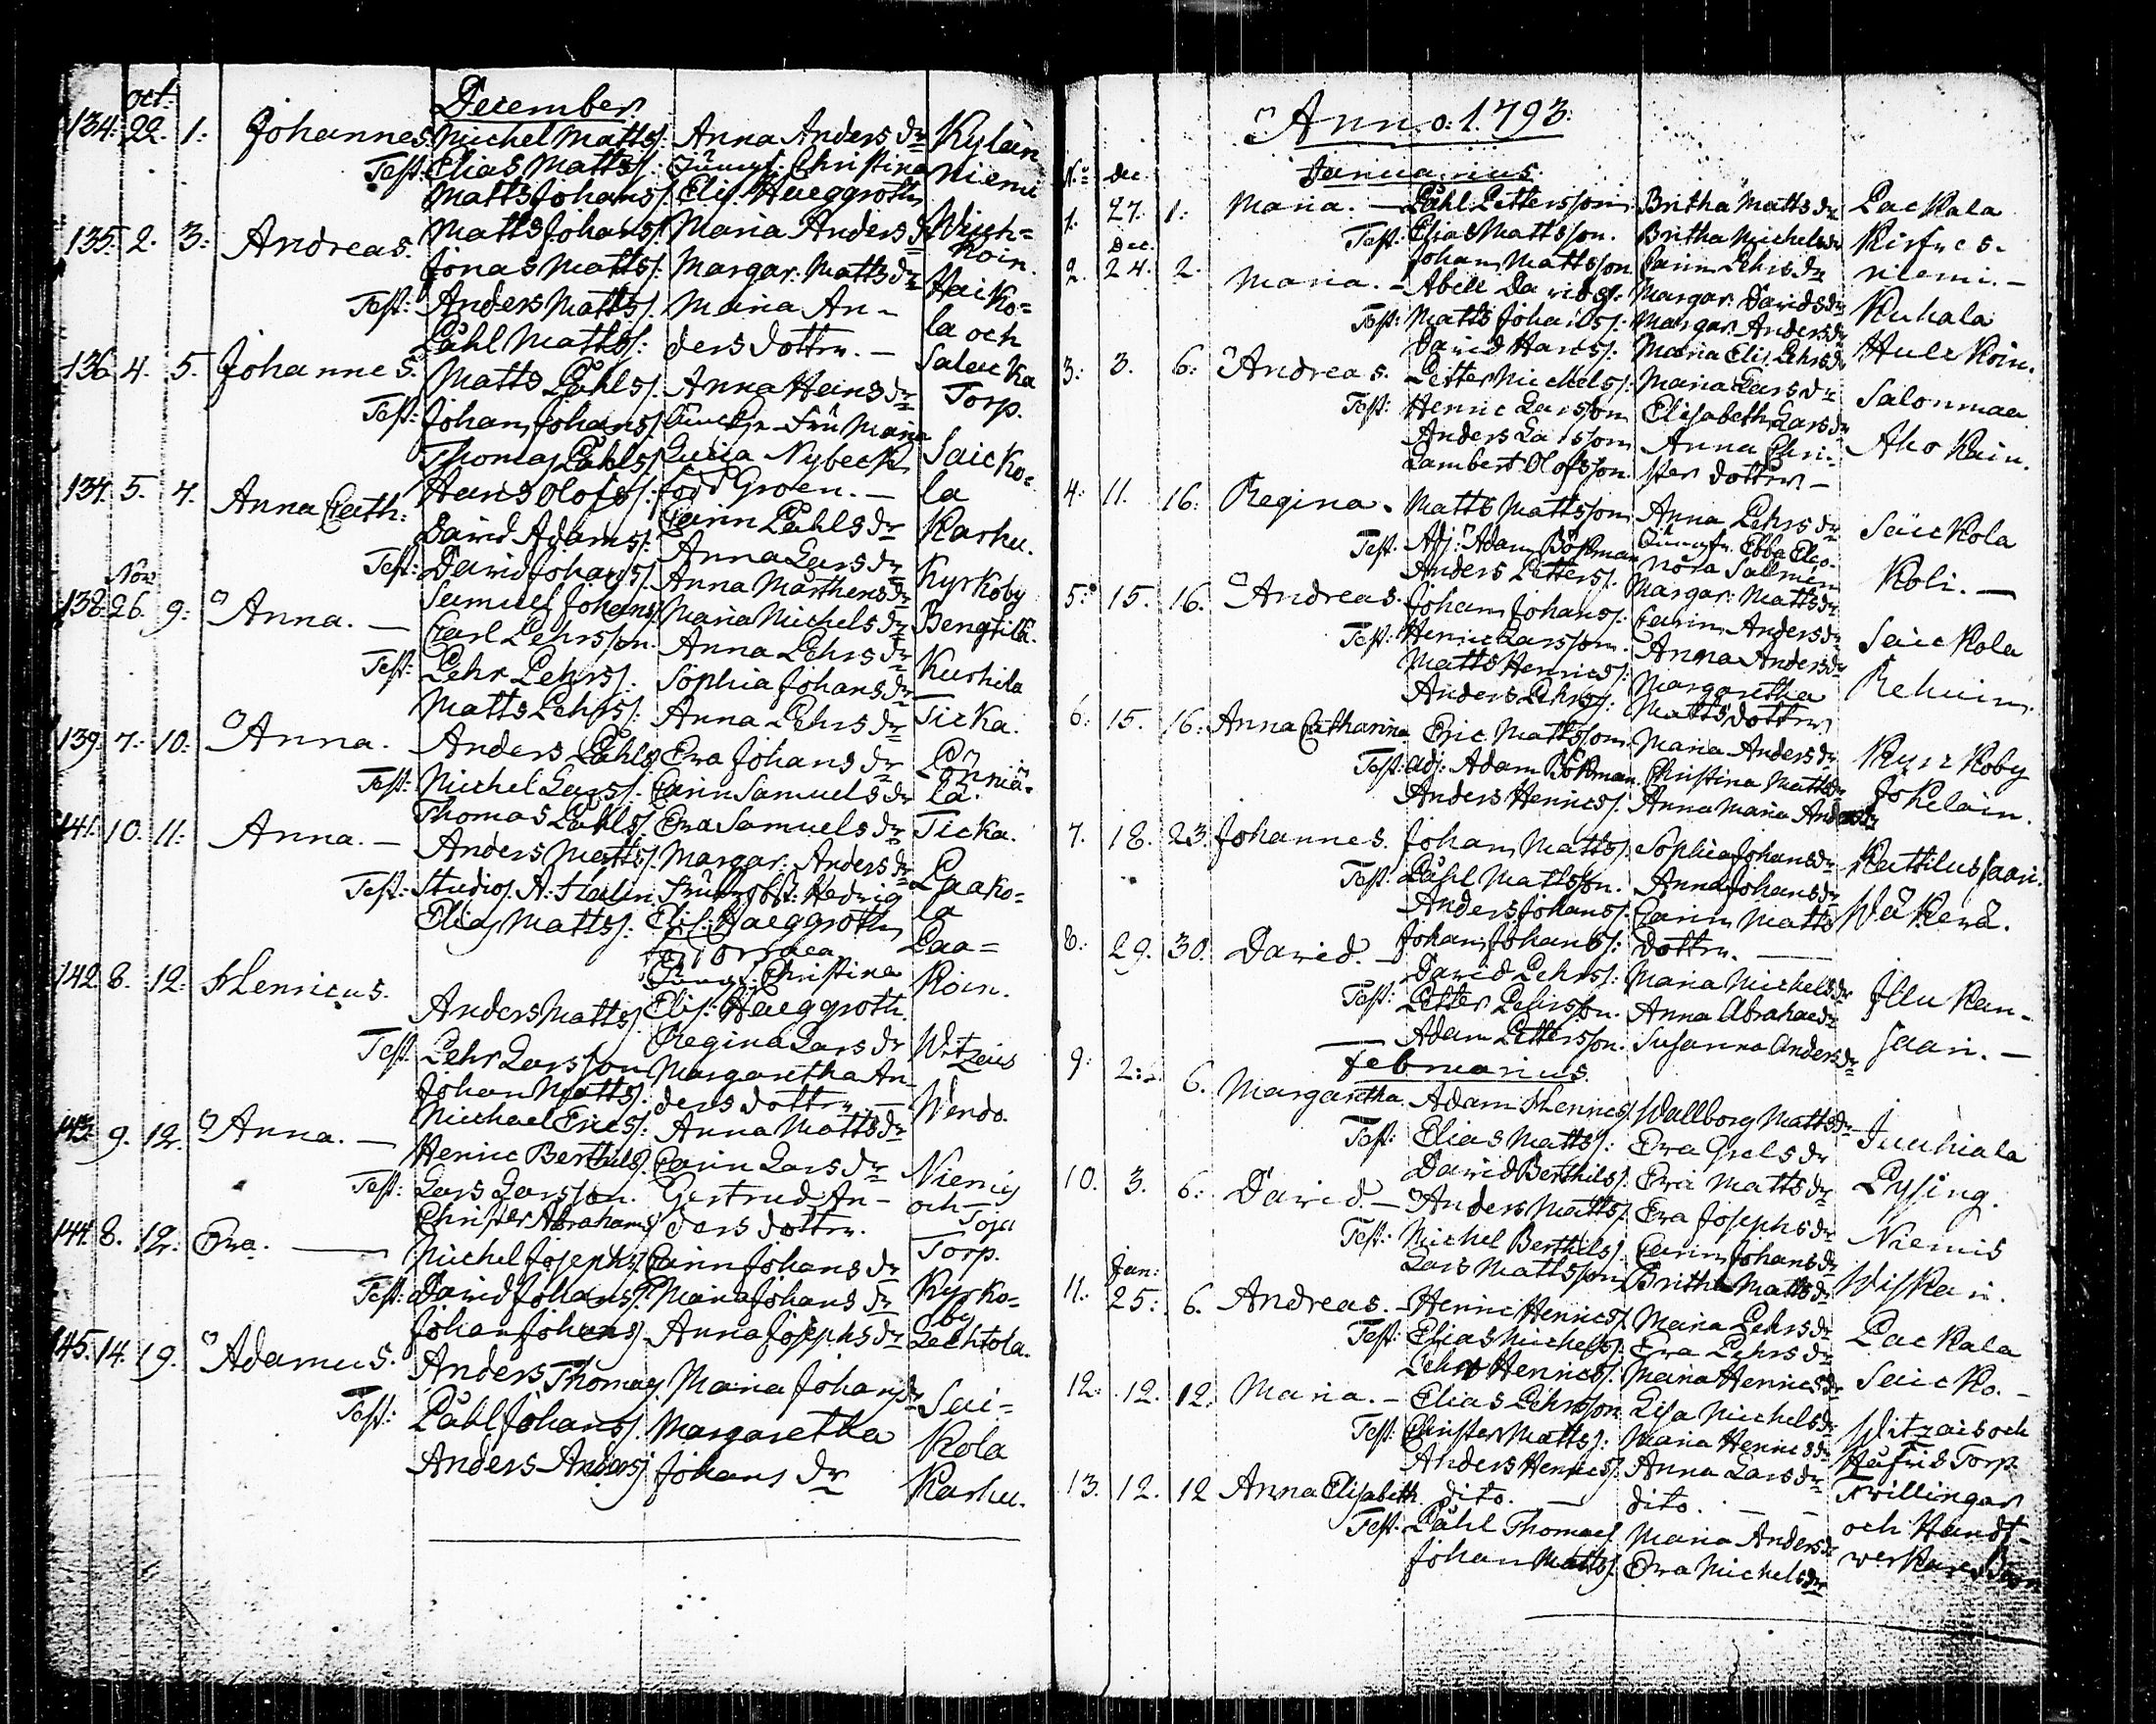 December
oct:
134. 22. 1: Johannes. Michel Matts/: Anna Anders dr Kylän
Test: Elias Matts/: Jungf: Christina Niemi
Matts Johans/: Elis: Haeggroth
135. 2. 3: Andreas. Matts Johans/: Maria Anders dr
Koin.
Jonas Matts/: Margar: Matts dr Haiko=
Test: Anders Matts/: Maria An- la och
Påhl Matts/: ders dotter. -
136. 4. 5. Johannes. Matts Påhls/: Anna Hans dr Torp.
Test: Johan Johans/: Fru Maria
Thomas Påhls/: Nybeck Saicko=
Hans Olofs/: född Groen. - la
137. 5. 7. Anna Cath: David Adams/: Carin Påhls dr Karhu.
Anna Lars dr
Test: David Johans/: Anna Mårthens dr Kyrkoby
Samuel Johans/: Maria Michels dr Bengtilä.
Nov
138. 26. 9: Anna. - Carl Pehrsson. Anna Pehrs dr
Test: Pehr Pehrs/: Sophia Johans dr Kurhila
Matts Pehrs/: Anna Pehrs dr Ticka.
139. 7. 10: Anna. Anders Påhls/: Eva Johans dr
Test: Michel Lars/: Carin Samuels dr lä.
Thomas Påhls/: Eva Samuels dr Ticka.
141. 10. 11: Anna. - Anders Matts/: Margar: Anders dr Laako=
Test: Studios. A: Hedvig la
Elias Matts/: Elis: Haeggroth Laa=
född
Jungf: Christina koin.
142. 8. 12: Henricus. Anders Matts/: Elis: Haeggroth.
Regina Lars dr Witzais
Test: Pehr Larsson Margaretha An-
Johan Matts/: ders dotter - Wendo.
Michael Erics/: Anna Matts dr
143. 9. 12. Anna. - Henric Berthils/: Carin Lars dr Niemis
Test: Lars Larsson. Gertrud An- och
Christer Abrahams/: ders dotter. Toja
144. 8. 12. Eva. - Michel Josephs/: Carin Johans dr Torp.
Test: David Johans/: Maria Johans dr Kyrko=
Johan Johans/: Anna Josephs dr by
Lechtola.
145. 14. 19. Adamus. Anders Thomas/: Maria Johans dr Sai=
Test: Påhl Johans/: Margaretha kola
Anders Anders/: Johans dr Karhu.
Anno: 1793:
Januarius.
No dec.
1. 27. 1: Maria. - Påhl Pettersson Britha Matts dr Packala
Test: Elias Mattsson. Britha Michels dr Kirfves-
Johan Mattsson Carin Pehrs dr niemi. -
Dec.
2. 24. 2. Maria. - Abell Davids/: Margar: Davids dr Kuhala
Test: Matts Johans/: Margar Anders dr
David Hans/: Maria Elis: Pehrs dr Hulckoin.
3: 3. 6: Andreas. Petter Michels/: Maria Lars dr Salonmaa
Test: Henric Larsson Elisabeth Lars dr
Anders Larsson Anna Chri- Ahokain.
Lambert Olofsson. ster dotter -
4: 11. 16: Regina. Matts Mattsson Anna Pehrs dr Säickola
Test. Adj: Adam Bökman Jungfr. Ebba Eleo-
Anders Petters/: nora Sallmén Koli. -
Margar: Matts dr
5: 15. 16. Andreas. Johan Johans/: Carin Anders dr Säickola
Test: Henric Larsson. Anna Anders dr
Matts Henrics/: Margaretha
Anders Pehrs/: Matts dotter
6: 15. 16: Anna Catharina Eric Mattsson Maria Anders dr Kyrckoby
Test: adj: Adam Bökman Christina Matts dr Jokelain.
Anders Henrics/: Anna Maria Anders dr
7. 18. 23. Johannes. Johan Matts/: Sophia Johans dr Kattilussaari.
Test: Påhl Mattsson. Anna Johans dr
Anders Johans/: Carin Matts Wäkevä.
Johan Johans/: dotter. -
8: 29. 30. David. - David Pehrs/: Maria Michels dr Illukan-
Test: Petter Pehrsson. Anna Abrahae dr
Adam Pettersson. Susanna Anders dr saari. -
Februarius.
9: 2: 6. Margaretha. Adam Henrics/: Wallborg Matts dr Junhiala
Test: Elias Matts/: Eva Grels dr
David Berthils/: Eva Matts dr Pysing.
10. 3. 6: David. - Anders Matts/: Eva Josephs dr Niemis
Test: Michel Berthils/: Carin Johans dr
Lars Mattsson Britha Matts dr Wiskari.
Jan:
11. 25: 6. Andreas. - Henric Henrics/: Maria Pehrs dr Packala
Test: Elias Michels/: Eva Pehrs dr
Pehr Henrics/: Maria Henrics dr Saicko. -
12: 12. 12: Maria. - Elias Pehrsson Lisa Michels dr Witzais och
Test: Christer Matts/: Maria Henrics dr Torp
Anders Henrics/: Anna Lars dr Twillingar
13. 12. 12 Anna Elisabeth. dito. - dito. - och Handt-
Test. Påhl Thomas/: Maria Anders dr werkare Barn
Johan Matts/: Eva Michels dr